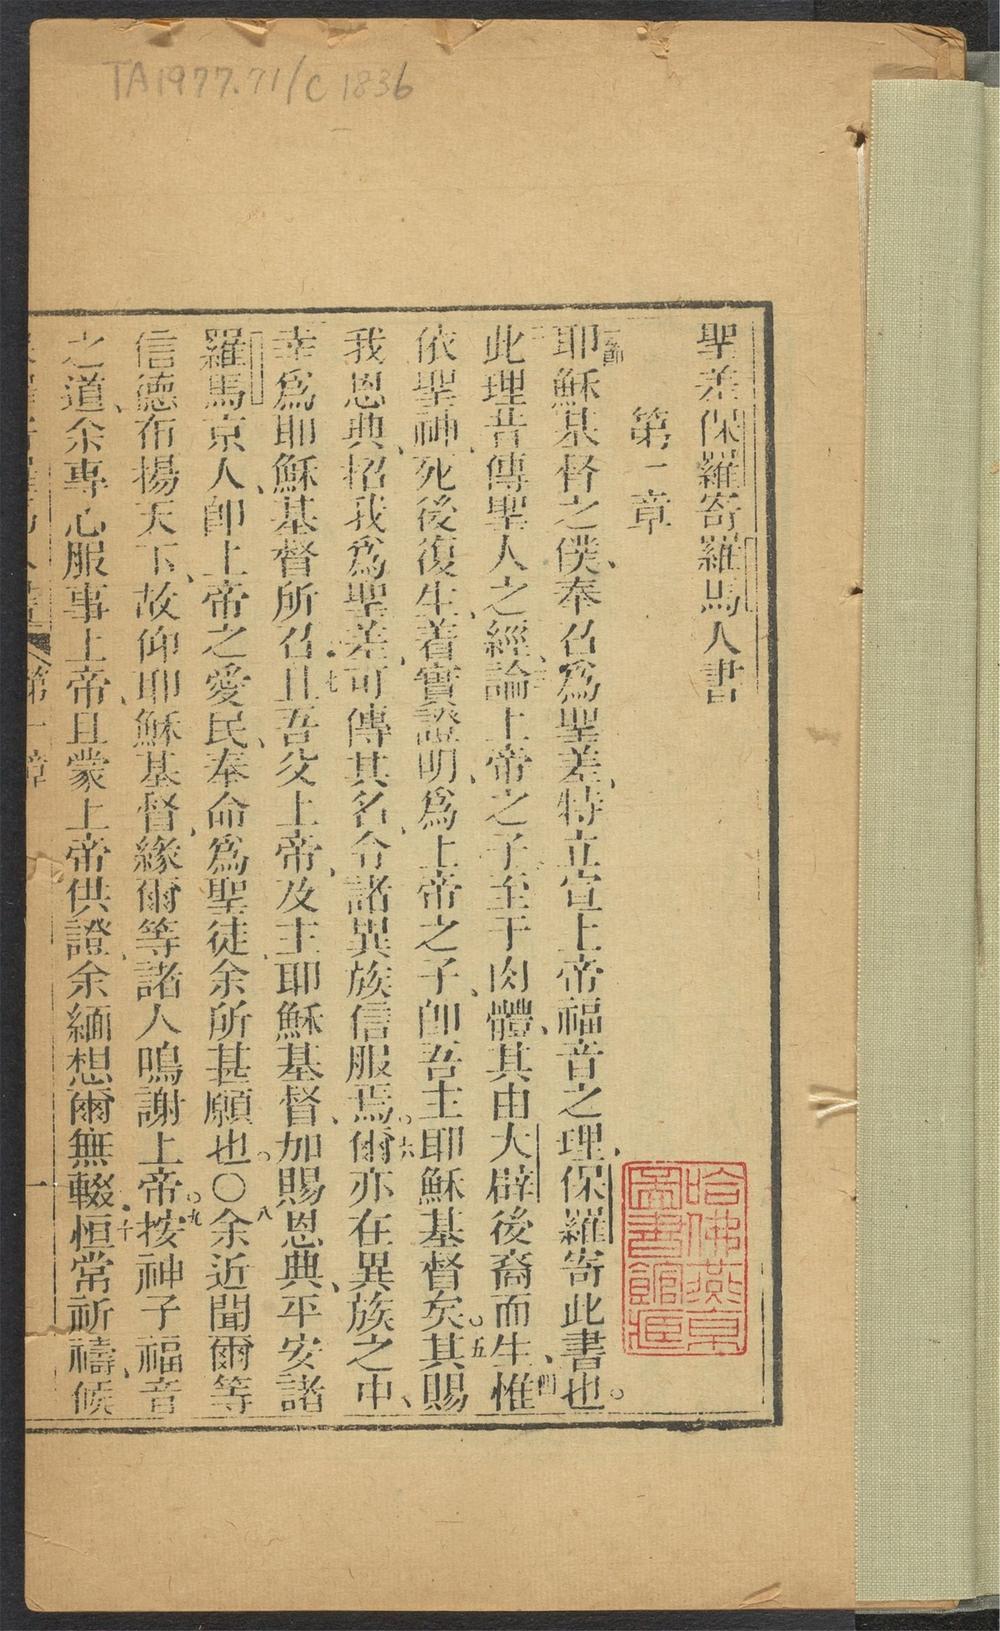 TA1977.71/C1836
聖差保羅寄羅馬人書
第一章
一節
耶穌基督之僕、奉召爲聖差、特立宣上帝福音之理、保羅寄此書也。
二此理昔傳聖人之經、三論上帝之子、至于肉體、其由大辟後裔而生、四惟
依聖神、死後復生、着實證明、爲上帝之子、卽吾主耶穌基督矣。五其賜
我恩典、招我爲聖差、可傳其名、令諸異族信服焉。六爾亦在異族之中、
幸爲耶穌基督所召、七且吾父上帝、及主耶穌基督、加賜恩典、平安、諸
羅馬京人、卽上帝之愛民、奉命爲聖徒、余所甚願也。〇八余近聞爾等
信德布揚天下、故仰耶穌基督、緣爾等諸人鳴謝上帝。九按神子福音
之道、余專心服事上帝、且蒙上帝供證、余緬想爾無輟、十恒常祈禱、候
第一章
一
哈佛燕京
圖書館